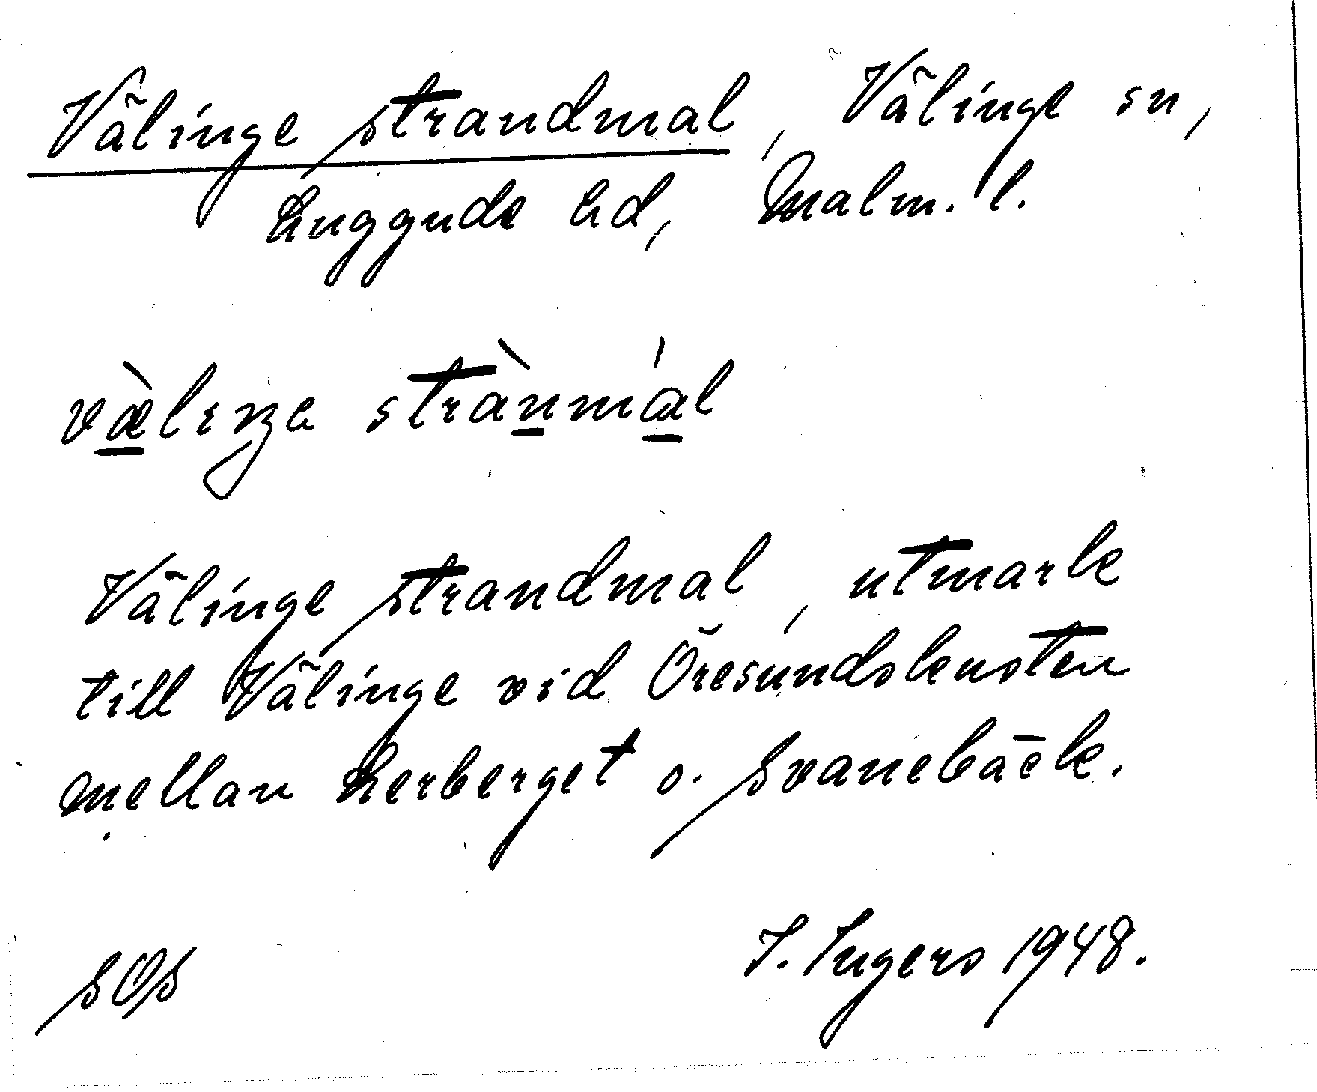 Välinge strandmal, Välinge sn,
Luggude hd, Malm. l.
vä̀lıŋa strànmál
Välinge strandmal, utmark
till Välinge vid Öresundskusten
mellan Lerberget o. Svanebäck.
SOS
I. Ingers 1948.